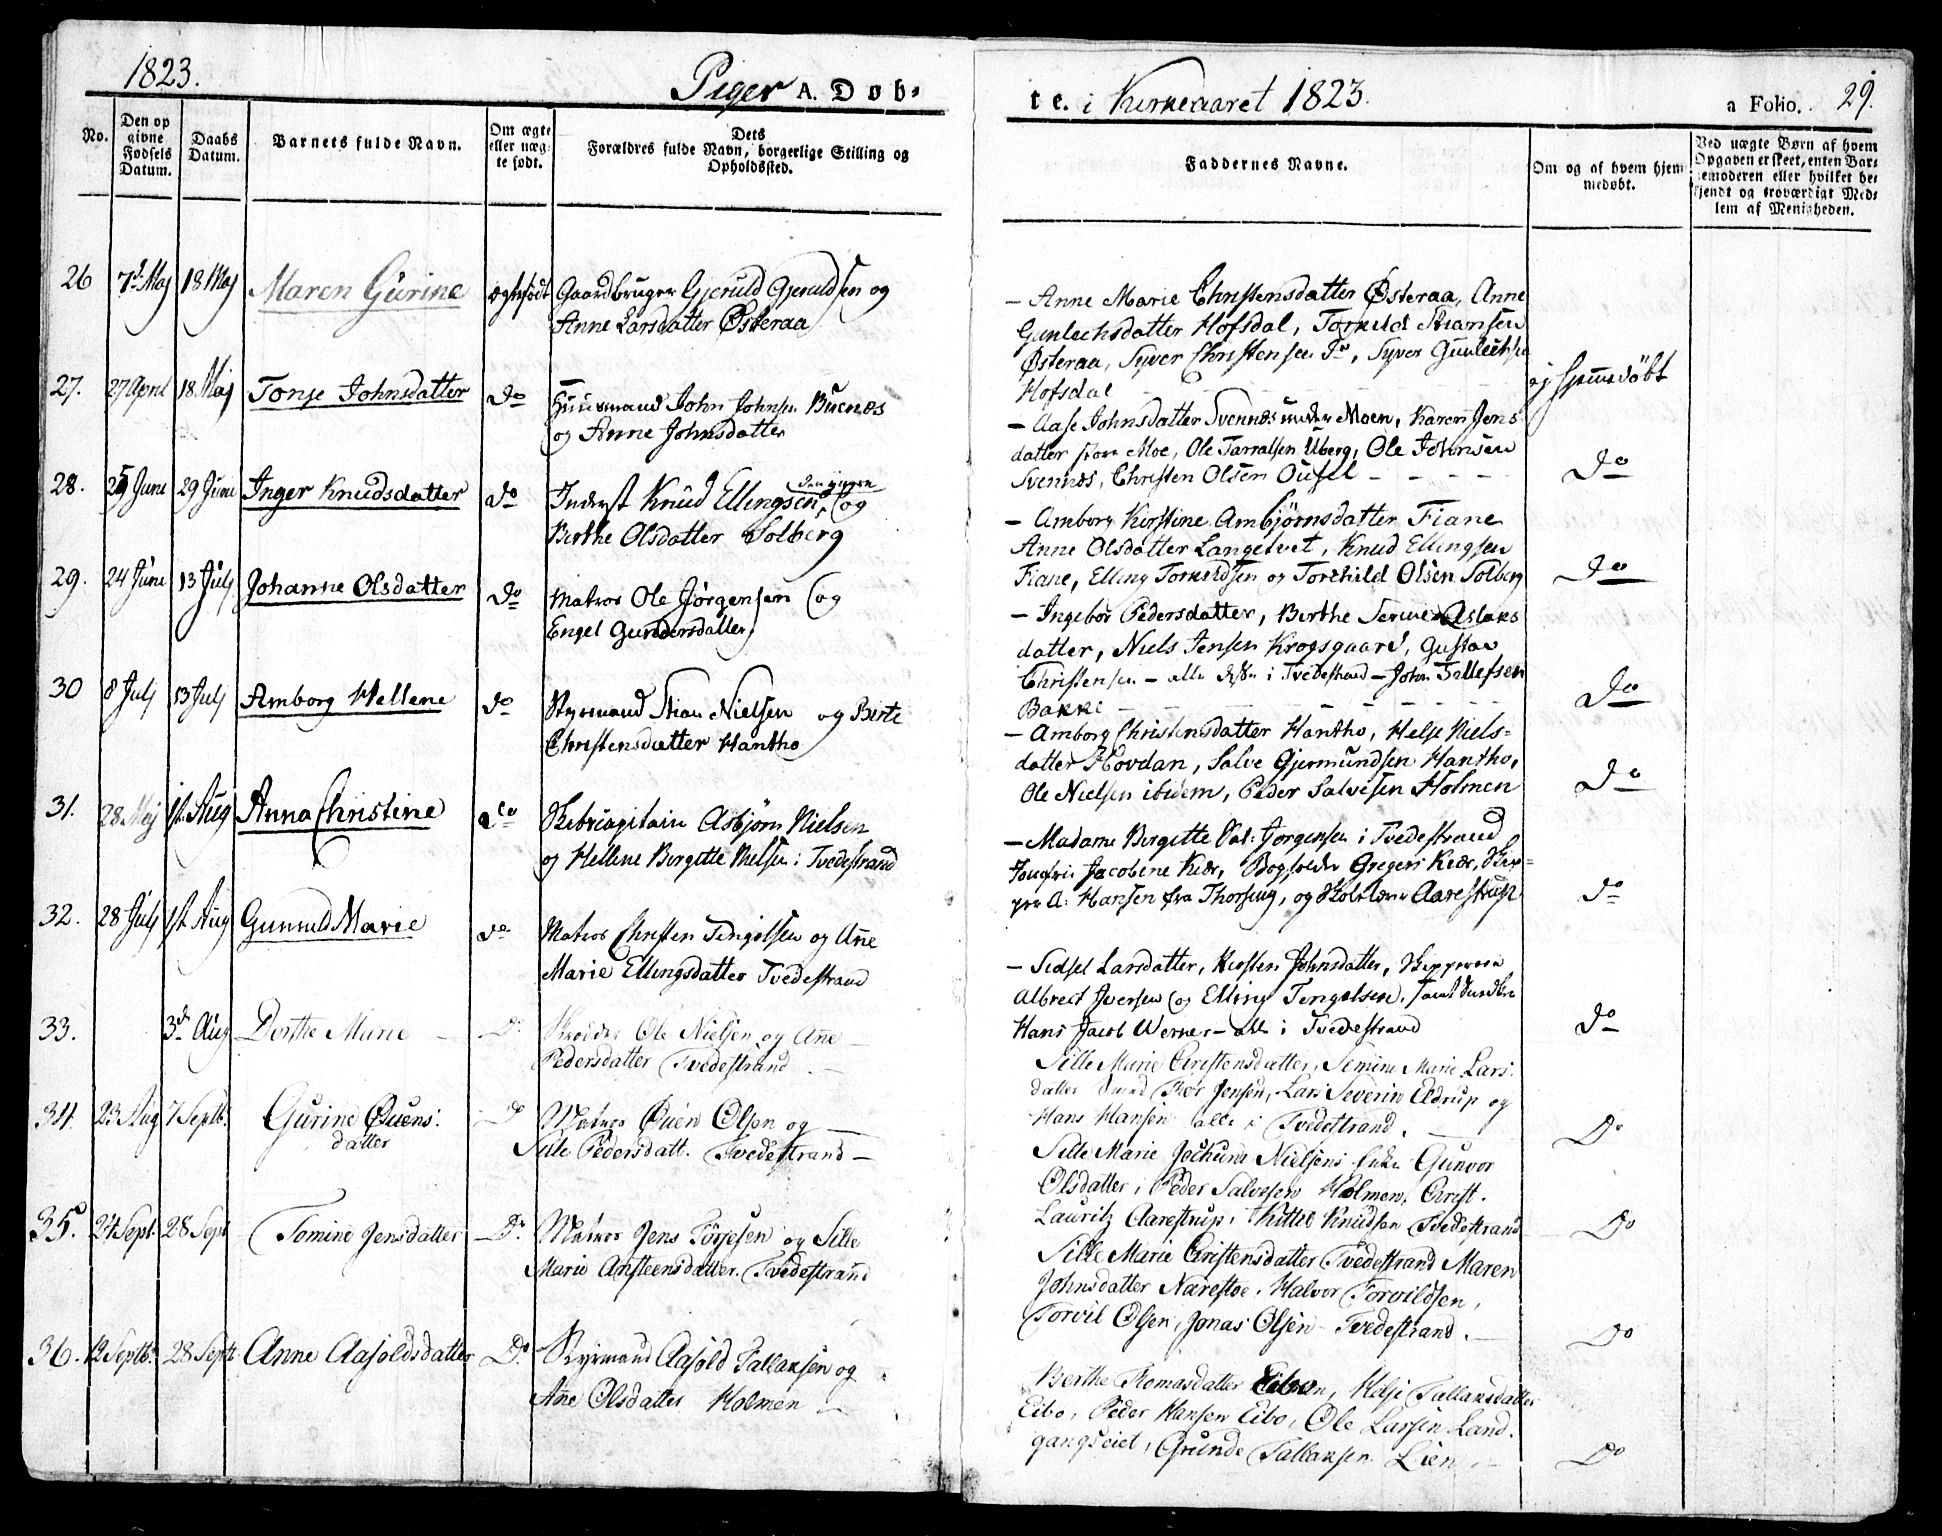 1823.
Piger A. Døb-
No.
Den op
givne
Fødsels
Datum.
Daabs
Datum.
Barnets fulde Navn.
Om ægte
eller uæg-
te født.
Dets
Forældres fulde Navn, borgerlige Stilling og
Opholdssted.
26 7d Maj 18 Maj Maren Gurine ægtefødt Gaardbruger Gjeruld Gjeruldsen og
Anne Larsdatter Østeraa
27. 27 April 18. Maj Tonje Johnsdatter do Huusmand John Johnsen Buenæs
og Anne Johnsdatter
28. 25 June 29 June Inger Knudsdatter do Inderst Knud Ellingsen og
Berthe Olsdatter Solberg
29. 24 June 13 July Johanne Olsdatter do Matros Ole Jørgensen og
Engel Gundersdatter
30 8 July 13 July Amborg Hellene do Styrmand Stian Nielsen og Berte
Christensdatter Hantho
31. 28 Maj 1st. Aug Anna Christine do Asbjørn Nielsen
og Hellene Birgitte Nielsen i Tvedestrand
32. 28 July 1st. Aug Gunnild Marie do Matros Christen Tengelsen og Ane
Marie Ellingsdatter Tvedestrand
33. 3de Aug Dorthe Marie Do Skredder Ole Nielsen og Ane
Pedersdatter Tvedestrand
34. 23 Aug 7 Septb. Gurine Øuens: Do Matros Øuen Olsen og
datter Sille Pedersdatt. Tvedestrand
35. 24 Sept. 28 Sept Tomine Jensdatter Do Matros Jens Törjesen og Sille
Marie Ansteensdatter. Tvedestrand
36. 12 Septb. 28 Sept Anne Aasoldsdatter Do Styrmand Aasold Tallaksen og
Ane Olsdatter Holmen
te. i Kirkeaaret 1823.
a Folio. 29.
Faddernes Navne.
Om og af hvem hjem
medøbt.
Ved uægte Børn af hvem
Opgaven er skeet, enten Bar-
nemoderen eller hvilket be-
kjendt og troværdigt Med-
lem af Menigheden.
- Anne Marie Christensdatter Østeraa, Anne
Gunlechsdatter Hofsdal, Torkild Stiansen
Østeraa, Syver Christensen do, Syver Gunlechsen
Hofsdal
ej hjemmedöbt
- Aase Johnsdatter Svennæs under Moen, Karen Jens
datter Moe, Ole Tarralsen Uberg, Ole Johnsen
Svennæs, Christen Olsen Ousel
do
- Amborg Kirstine Ambjørnsdatter Fiane
Anne Olsdatter Langetvet, Knud Ellingsen
Fiane, Elling Torkildsen og Torchild Olsen Solberg
do
- Ingebor Pedersdatter, Berthe Aslaks
datter, Niels Jensen Krogsgaard, Gustav
Christensen - alle i Tvedestrand - John Tellefsen
Bakke
do
- Amborg Christensdatter Hantho, Helje Niels-
datter Hovdan, Salve Gjermundsen Hantho,
Ole Nielsen ibidem, Peder Salvesen Holmen
do
- Madame Birgitte Jørgensen i Tvedestrand
Jomfrue Jacobine Kiær, Bogholder Gregers Kiær, Skip-
per A: Hansen fra Thorsing, og Skolelærer Aarestrup
do
- Sidsel Larsdatter, Kirsten Johnsdatter, Skipperne
Albrect Iversen og Elling Tengelsen,
Hans Jacob Werner - alle i Tvedestrand
do
Sille Marie Christensdatter, Semine Marie Lars:
datter Peer Jensen, Lars Severin Eldrup og
Hans Hansen alle i Tvedestrand.
Do
Sille Marie Jochum Nielsens Enke Gunvor
Olsdatter, Peder Salvesen Holmen, Christ.
Lauritz Aarestrup, Kittel Knudsen Tvedestrand
Do
Sille Marie Christensdatter Tvedestrand Maren
Johnsdatter Narestoe, Halvor Torvildsen,
Torvil Olsen, Jonas Olsen Tvedestrand.
Do
Berthe Thomasdatter Eiboen, Helje Tallaksdatter
Eibo, Peder Hansen Eibo, Ole Larsen Land.
gangseiet, Grunde Tallaksen Lien
Do